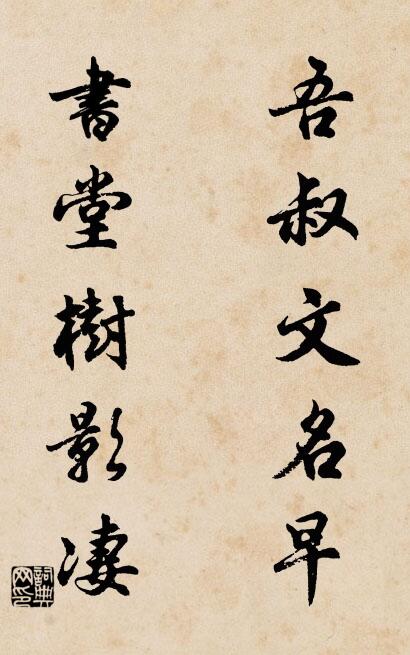 吾叔文名早
書堂樹影凄
詞典网印